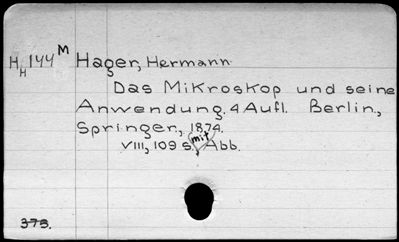 H H 144 M Hager, Hermann
Das Mikroskop und seine
Anwendung. 4 Aufl. Berlin,
Springer, 1874.
VIII, 109 S. mit Abb.
373.